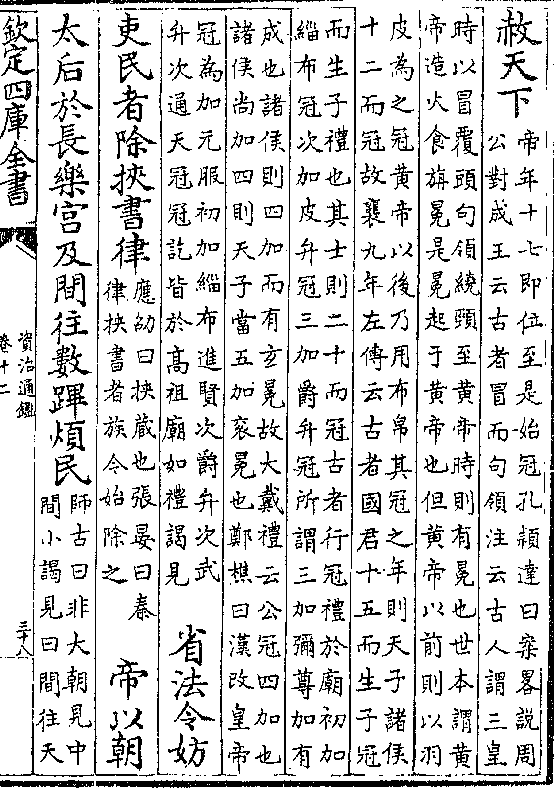 赦天下
帝年十七即位至是始冠孔穎達曰案畧説周
公對成王云古者冒而句領注云古人謂三皇
時以冒覆頭句領繞頸至黄帝時則有冕也世本謂黄
帝造火食旃冕是冕起于黄帝也但黄帝以前則以羽
皮為之冠黄帝以後乃用布帛其冠之年則天子諸侯
十二而冠故襄九年左傳云古者國君十五而生子冠
而生子禮也其士則二十而冠古者行冠禮於廟初加
緇布冠次加皮弁冠三加爵弁冠所謂三加彌尊加有
成也諸侯則四加而有玄冕故大戴禮云公冠四加也
諸侯尚加四則天子當五加衮冕也鄭樵曰漢改皇帝
冠為加元服初加緇布進賢次爵弁次武
弁次通天冠冠訖皆於髙祖廟如禮謁見
省法令妨
吏民者除挾書律
應劭曰挾藏也張晏曰秦
律挾書者族令始除之
帝以朝
太后於長樂宫及間往數蹕煩民
師古曰非大朝見中
間小謁見曰間往天
欽定四庫全書
資治通鑑
卷十二
三十八